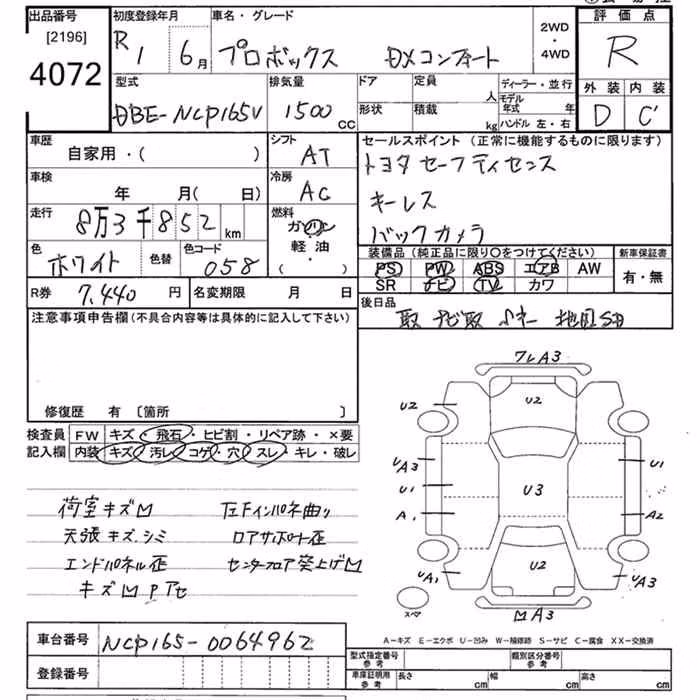 出品番号 初度登録年月 車名・グレード 2WD・4WD 評価点
[2196]
4072
R1 6月 プロボックス DXコンフォート R
型式 排気量 ドア 定員 人 ディーラー・並行 外装 内装
DBE-NCP165V 1500cc 形状 積載 kg モデル年式 年 ハンドル 左・右 D C'
車歴 シフト セールスポイント(正常に機能するものに限ります)
自家用・( ) AT トヨタセーフティセンス
車検 冷房 キーレス
年 月( 日) AC バックカメラ
走行 燃料
8万3千852km ガソリン
軽油・( )
装備品(純正品に限り○をつけてください) 新車保証書
色 色替 色コード PS PW ABS エアB AW 有・無
ホワイト 058 SR ナビ TV カワ
R券 7,440円 名変期限 月 日 後日品
取 ナビ取
注意事項申告欄(不具合内容等は具体的に記入して下さい)
修復歴 有 〔箇所 〕
検査員 FW キズ・飛石・ヒビ割・リペア跡・×要
記入欄 内装 キズ・汚レ・コゲ・穴・スレ・キレ・破レ
荷室キズ凹 左Fインパネ曲り
天張キズ.シミ ロアサポート歪
エンドパネル歪 センターフロア突上げ凹
キズ凹Pアセ
フレA3
U2
U2
UA3 U1
U1 U3
A1 A2
UA1 U2 UA3
スペア 凹A3
A-キズ E-エクボ U-凹み W-補修跡 S-サビ C-腐食 XX-交換済
車台番号 NCP165-0064962
型式指定番号 参考 類別区分番号 参考
登録番号
車庫証明用 参考 長さ cm 幅 cm 高さ cm